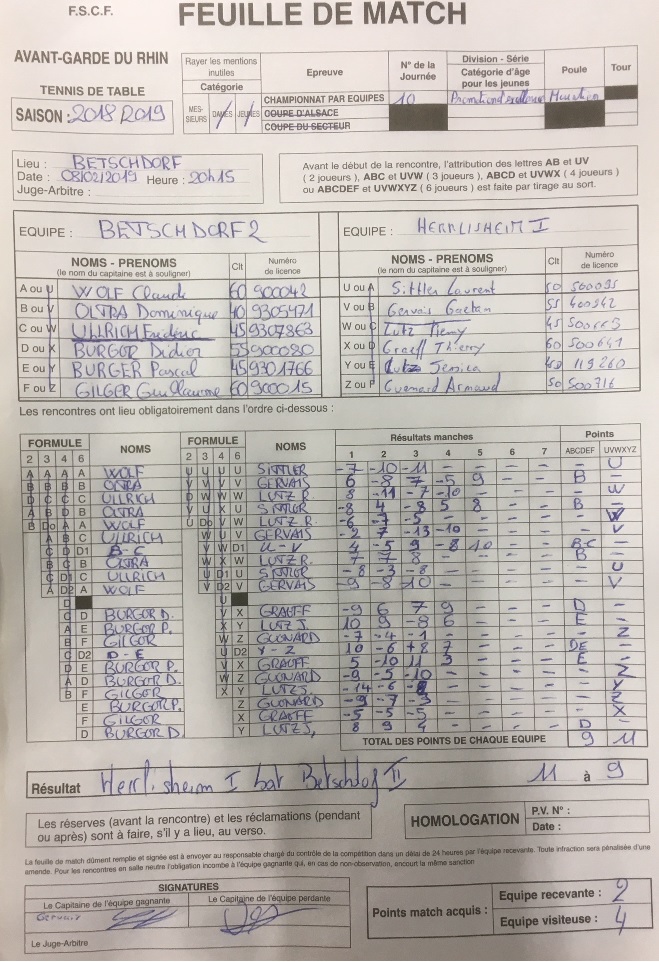 F.S.C.F.
FEUILLE DE MATCH
AVANT-GARDE DU RHIN
TENNIS DE TABLE
SAISON : 2018 2019
Rayer les mentions inutiles
Catégorie
MES-SIEURS DAMES JEUNES
Epreuve
CHAMPIONNAT PAR EQUIPES
COUPE D'ALSACE
COUPE DU SECTEUR
N° de la Journée
10
Division - Série
Catégorie d'âge pour les jeunes
Poule
Tour
Lieu : BETSCHDORF
Date : 08/02/2019 Heure : 20h15
Juge-Arbitre :
Avant le début de la rencontre, l'attribution des lettres AB et UV
( 2 joueurs ), ABC et UVW ( 3 joueurs ), ABCD et UVWX ( 4 joueurs )
ou ABCDEF et UVWXYZ ( 6 joueurs ) est faite par tirage au sort.
EQUIPE : BETSCHDORF 2
EQUIPE : HERRLISHEIM I
NOMS - PRENOMS Clt Numéro de licence
(le nom du capitaine est à souligner)
A ou U WOLF Claude 60 900042
B ou V OLTRA Dominique 40 9305471
C ou W ULLRICH Frédéric 45 9307863
D ou X BURGER Didier 55 900080
E ou Y BURGER Pascal 45 9301766
F ou Z GILGER Guillaume 60 900015
NOMS - PRENOMS Clt Numéro de licence
(le nom du capitaine est à souligner)
U ou A Sittler Laurent 50 500095
V ou B Gervais Gaetan 55 400342
W ou C Lutz Remy 45
X ou D Graeff Thierry 60 500641
Y ou E Lutz Jessica 40 119260
Z ou F Guenard Armand 50 500716
Les rencontres ont lieu obligatoirement dans l'ordre ci-dessous :
FORMULE NOMS FORMULE NOMS Résultats manches Points
2 3 4 6 2 3 4 6 1 2 3 4 5 6 7 ABCDEF UVWXYZ
A A A A WOLF U U U U SITTLER -7 -10 -11 - - - - - U
B B B B OLTRA V V V V GERVAIS 6 -8 7 -5 9 - - B -
C C C ULLRICH W W W LUTZ R. 8 -11 -7 -10 - - - - W
OLTRA SITTLER -8 4 -8 5 8 - - B -
WOLF LUTZ R. -6 -7 -5 - - - - - W
ULLRICH GERVAIS -2 7 -13 -10 - - - - V
D1 B-C D1 U-V 4 -5 9 -8 10 - - B-C -
OLTRA LUTZ R 7 7 8 - - - - B -
ULLRICH SITTLER -8 -3 -8 - - - - - U
WOLF GERVAIS -9 -8 -10 - - - - - V
BURGER D. GRAEFF -9 6 7 9 - - - D -
BURGER P. LUTZ J. 10 9 -8 6 - - - E -
GILGER GUENARD -7 -4 -1 - - - - - Z
D2 D-E D2 Y-Z 10 -6 +8 7 - - - DE -
BURGER P. GRAEFF 5 -10 11 3 - - - E -
BURGER D. GUENARD -9 -5 -10 - - - - - Z
GILGER LUTZ J. -14 -6 - - - - - Y
BURGER P. Z GUENARD -9 -7 -3 - - - - - Z
GILGER X GRAEFF -5 -5 -5 - - - - - X
D BURGER D. Y LUTZ J. 8 9 4 - - - - D -
TOTAL DES POINTS DE CHAQUE EQUIPE 9 11
Résultat Herrlisheim I bat Betschdorf II 11 à 9
Les réserves (avant la rencontre) et les réclamations (pendant
ou après) sont à faire, s'il y a lieu, au verso.
HOMOLOGATION
P.V. N° :
Date :
La feuille de match dûment remplie et signée est à envoyer au responsable chargé du contrôle de la compétition dans un délai de 24 heures par l'équipe recevante. Toute infraction sera pénalisée d'une
amende. Pour les rencontres en salle neutre l'obligation incombe à l'équipe gagnante qui, en cas de non-observation, encourt la même sanction
SIGNATURES
Le Capitaine de l'équipe gagnante
Le Capitaine de l'équipe perdante
Gervais
Le Juge-Arbitre
Points match acquis :
Equipe recevante : 2
Equipe visiteuse : 4